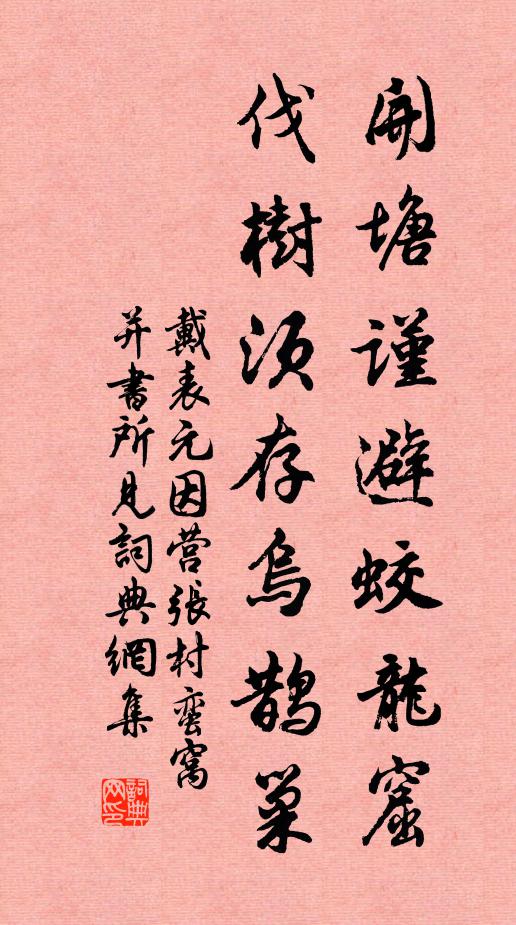 開塘謹避蛟龍窟
伐樹須存烏鵲巢
戴表元因营張村蛮窩
并書所見詞典網集
詞典网印